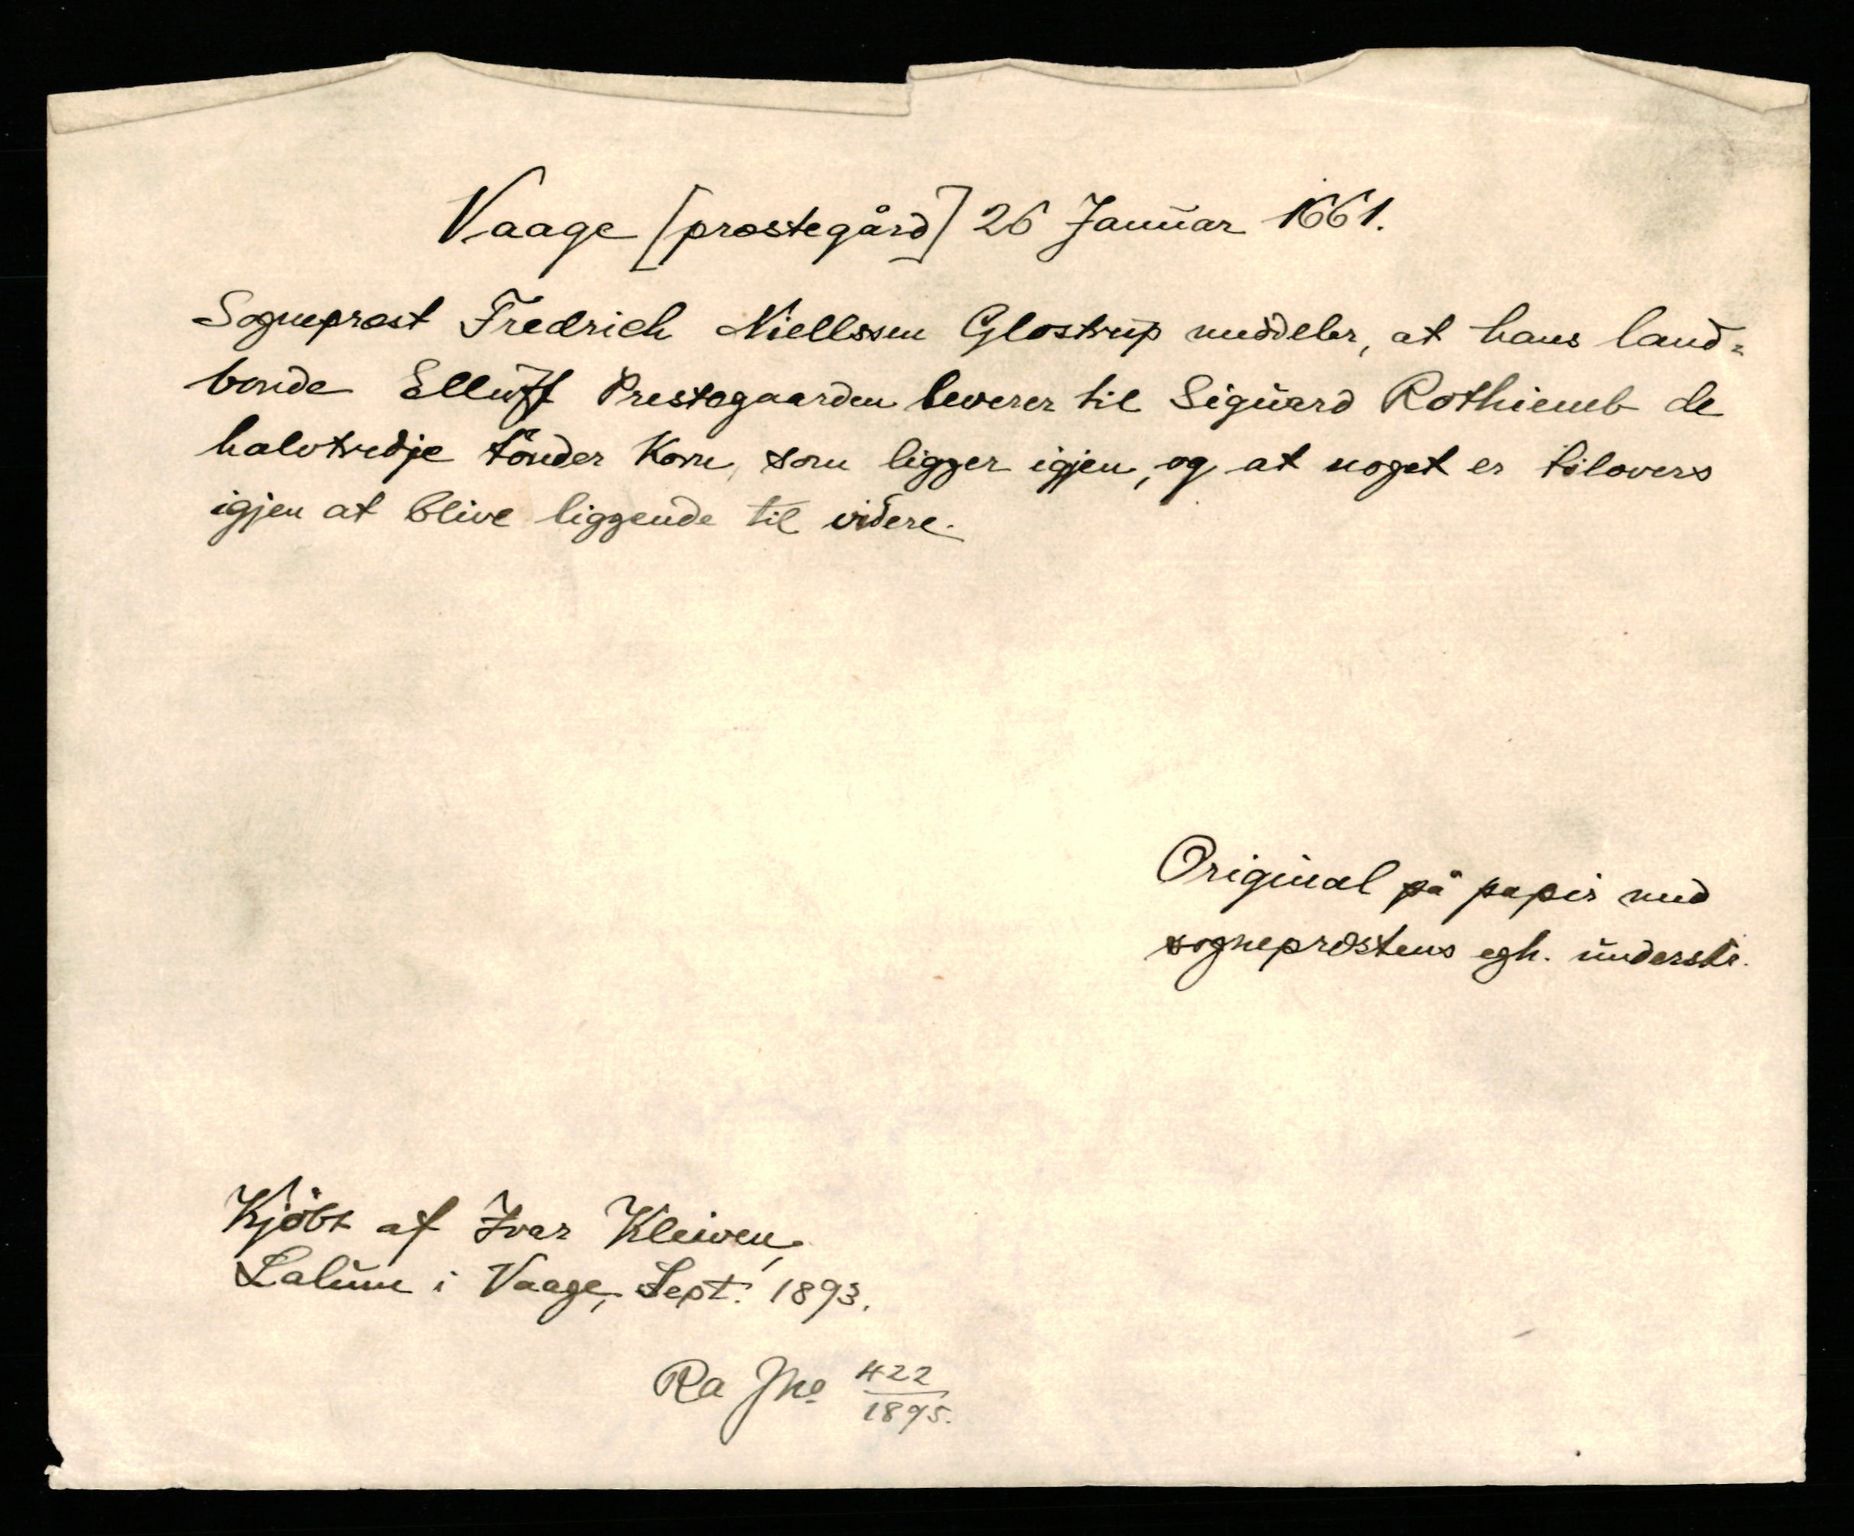 Vaage [præstegård] 26 Januar 1661.
Sognepræst Fredrich Niellssen Glostrup meddeler, at hans land-
bonde Elluff Prestegaarden leverer til Siguard Rothiemb de
halvtredje tönder Korn, som ligger igjen, og at noget er tilovers
igjen at blive liggende til videre.
Original på papir med
sognepræstens egh. understr.
Kjøbt af Ivar Kleiven,
Lalum i Vaage, Sept. 1893.
Ra Jno 422/1895.